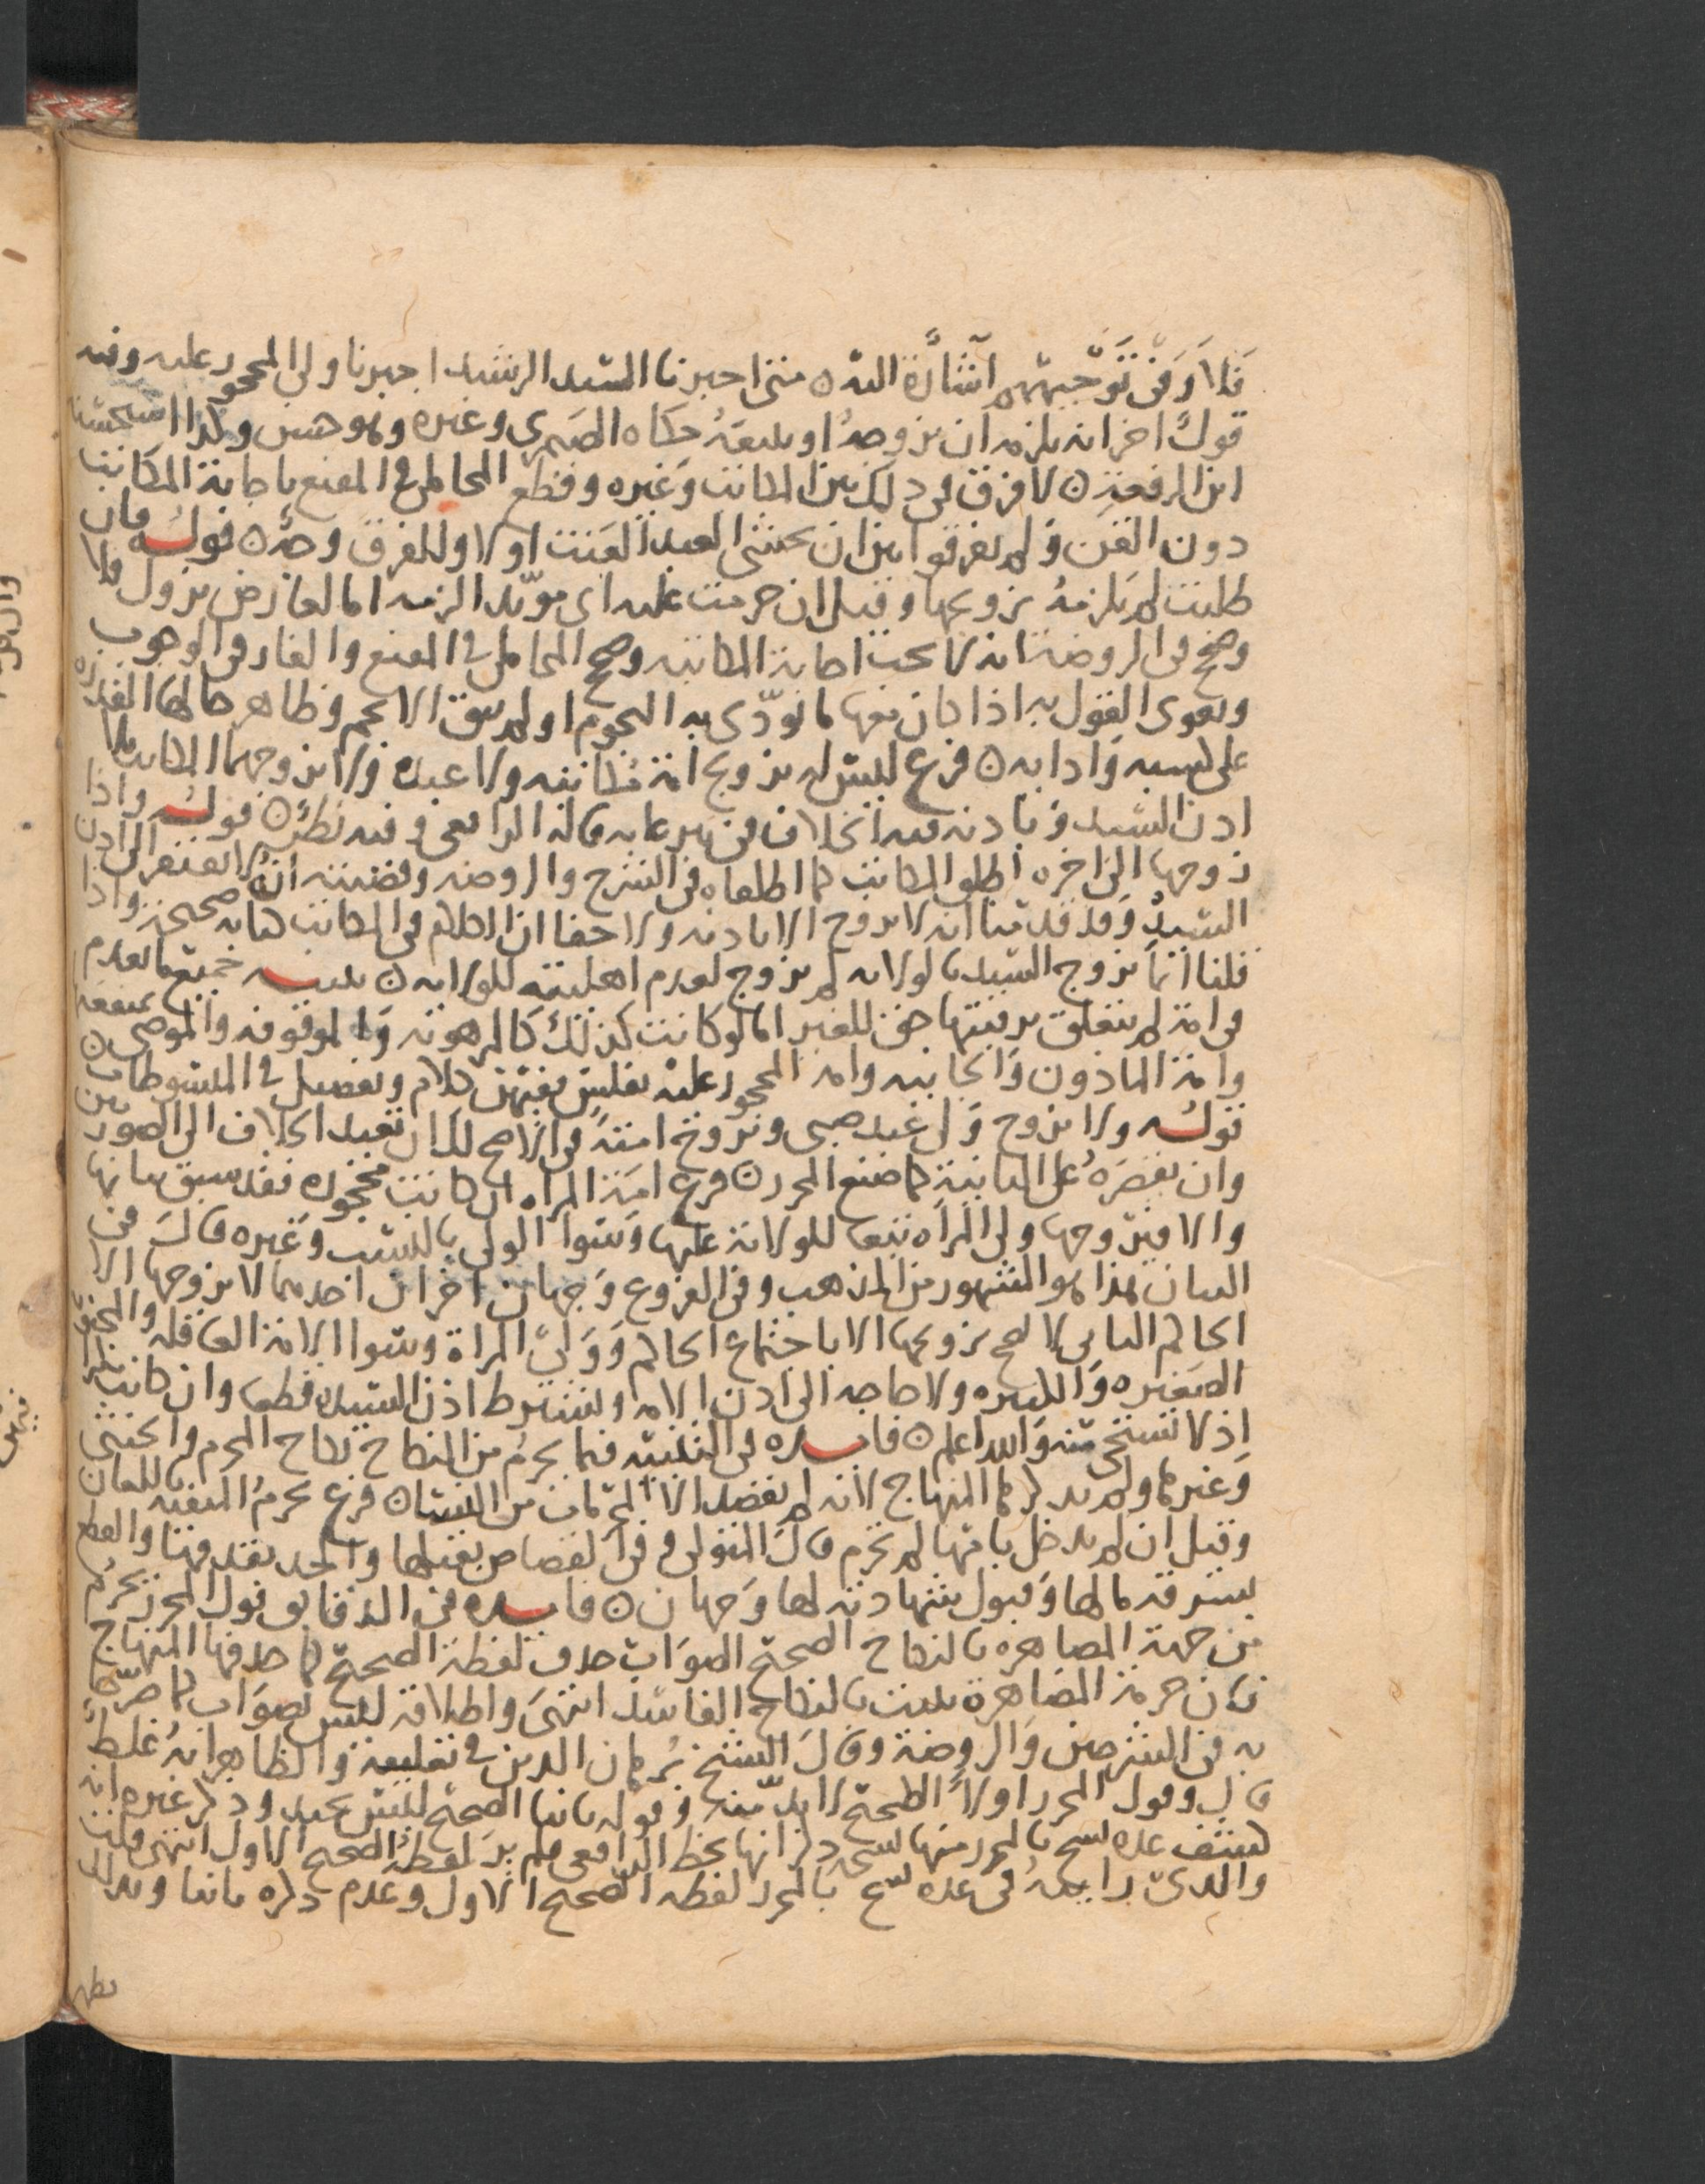 فلا وفي توجيههم اشارة اليه ه متى اجبرنا السيد الرشيد اجبرنا ولي المحجور عليه وفيه
قول اخر انه يلزمه ان يزوجه او يبيعه حكاه الصيمري وغيره وهو حسن وكذا استحسنه
ابن الرفعة ه لا فرق في ذلك بين المكاتب وغيره وقطع المحاملي في المقنع باجابة المكاتب
دون القن ولم يفرقوا بين ان يخشى العبد العنت او لا وللفرق وجه ه قوله فان
طلبت لم يلزمه تزويجها وقيل ان حرمت عليه اي مؤبدا لزمه اما لعارض يزول فلا
وصحح في الروضة انه لا يجب اجابة المكاتبه وصحح المحاملي في المقنع والفارقي الوجوب
ويقوى القول به اذا كان معها ما تؤدى به النجوم او لم يبق الا نجم وظاهر حالها القدره
على كسبه وادايه ه فرع ليس له تزويج امة مكاتبه ولا عبده ولا يزوجهما المكاتب بلا
اذن السيد وباذنه فيه الخلاف في تبرعاته قاله الرافعي وفيه نظر ه قوله واذا
زوجها الى اخره اطلق المكاتب كما اطلقاه في الشرح والروضه وقضيته انه لا يفتقر الى اذن
السيد وقد قدمنا انه لا يزوج الا باذنه ولا خفا ان الكلام في المكاتب كتابه صحيحة واذا
قلنا انما يزوج السيد بالولايه لم يزوج لعدم اهليته للولايه ه تنبيه جميع ما تقدم
في امة لم يتعلق برقبتها حق للغير اما لو كانت كذلك كالمرهونه والموقوفه والموصى بمنفعة
وامة المأذون والجانيه وامة المحجور عليه بفلس ففيهن كلام وتفصيل في المبسوطات ه
قوله ولا يزوج ولي عبد صبي ويزوج امته في الاصح لك ان تعيد الخلاف الى الصورتين
وان تقصره على الثانية كما صنع المحرر ه فرع امة المراه ان كانت محجوره فقد سبق بيانها
والا فيزوجها ولي المراه تبعا للولاية عليها وسوا الولي بالنسب وغيره قال في
البيان هذا هو المشهور من المذهب وفي الفروع وجهان اخران احدهما لا يزوجها الا
الحاكم الثاني لا يصح تزويجها الا باجتماع الحاكم وولي المراة وسوا الامة العاقله والمجنونه
الصغيره والكبيره ولا حاجه الى اذن الامه ويشترط اذن السيده قطعا وان كانت بكرا
اذ لا تستحي منه والله اعلم ه فايده في التنبيه فيما يحرم من النكاح نكاح المحرم والخنثى
وغيرهما ولم يذكرهما المنهاج لانه لم يقصد الا المحرمات من النساء ه فرع تحرم المنفيه باللعان
وقيل ان لم يدخل بامها لم تحرم قال المتولي وفي القصاص بقتلها والحد بقذفها والقطع
بسرقه مالها وقبول شهادته لها وجهان ه فايده في الدقايق قول المحرر يحرم
من جهة المصاهره بالنكاح الصحيح الصواب حذف لفظة الصحيح كما حذفها المنهاج
فان حرمة المصاهرة تثبت بالنكاح الفاسد انتهى واطلاقه ليس بصواب كما صرحا
به في الشرحين والروضة وقال الشيخ برهان الدين في تعليقه والظاهر انه غلط
قال وقول المحرر اولا الصحيح لا بد منه وقوله ثانيا الصحيح ليس بجيد وذكر غيره انه
كشف عده نسخ بالمحرر منها نسخه ذكر انها بخط الرافعي فلم ير لفظة الصحيح الاول انتهى قلت
والذي رايته في عده نسخ بالمحرر لفظه الصحيح الاول وعدم ذكره ثانيا وبذلك